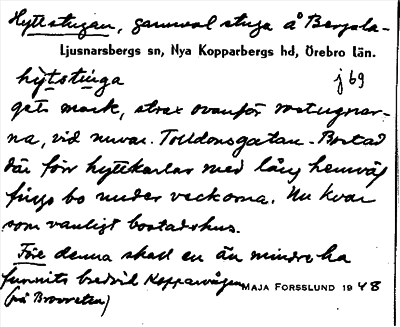 Hyttstugan, gammal stuga å Bergsla-
Ljusnarsbergs sn, Nya Kopparbergs hd, Örebro län.
hýtstùga j 69
gets mark, strax ovanför rostugnar-
na, vid nuvar. Tolldonsgatan. Bostad
där förr hyttkarlar med lång hemväg
fingo bo under veckorna. Nu kvar
som vanligt bostadshus.
Före denna skall en än mindre ha
funnits bredvid Koppar­vågen
MAJA FORSSLUND 1948
(på Broreten)